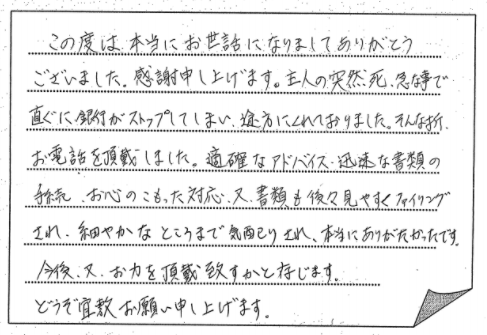 この度は、本当にお世話になりましてありがとう
ございました。感謝申し上げます。主人の突然死、急な事で
直ぐに銀行がストップしてしまい、途方にくれておりました。そんな折、
お電話を頂戴しました。適確なアドバイス・迅速な書類の
手続、お心のこもった対応、又、書類も後々見やすくファイリング
され、細やかなところまで気配りされ、本当にありがたかったです。
今後、又、お力を頂戴致すかと存じます。
どうぞ宜敷お願い申し上げます。